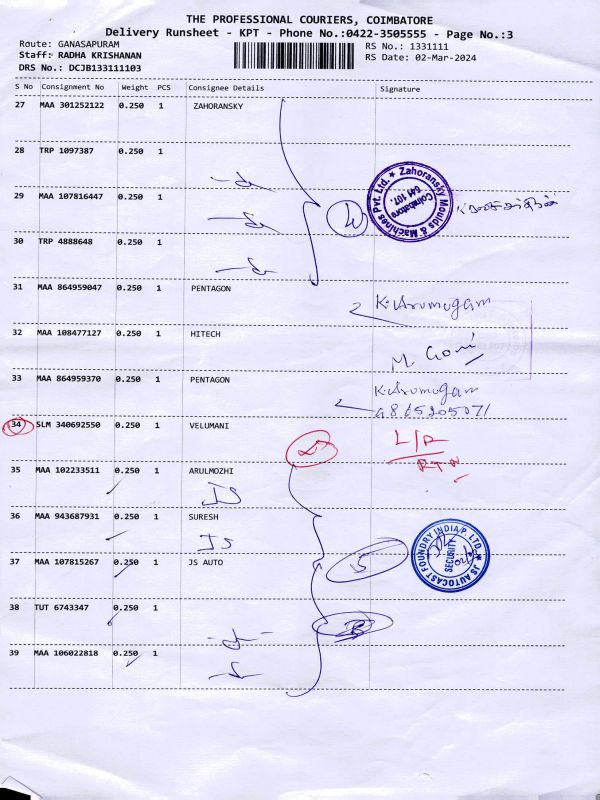 THE PROFESSIONAL COURIERS, COIMBATORE
Delivery Runsheet - KPT - Phone No.:0422-3505555 - Page No.:3
Route: GANASAPURAM RS No.: 1331111
Staff: RADHA KRISHANAN RS Date: 02-Mar-2024
DRS No.: DCJB133111103
S No Consignment No Weight PCS Consignee Details Signature
27 MAA 301252122 0.250 1 ZAHORANSKY
28 TRP 1097387 0.250 1
29 MAA 107816447 0.250 1
Zahoransky Moulds & Machines Pvt. Ltd. ★
Coimbatore
641 107.
30 TRP 4888648 0.250 1
31 MAA 864959047 0.250 1 PENTAGON
K. Arumugam
32 MAA 108477127 0.250 1 HITECH
M. Gowri
33 MAA 864959370 0.250 1 PENTAGON
K. Arumugam
34 SLM 340692550 0.250 1 VELUMANI
35 MAA 102233511 0.250 1 ARULMOZHI
JS
36 MAA 943687931 0.250 1 SURESH
JS
37 MAA 107815267 0.250 1 JS AUTO
★ JS AUTOCAST FOUNDRY INDIA P. LTD.
SECURITY
38 TUT 6743347 0.250 1
39 MAA 106022818 0.250 1